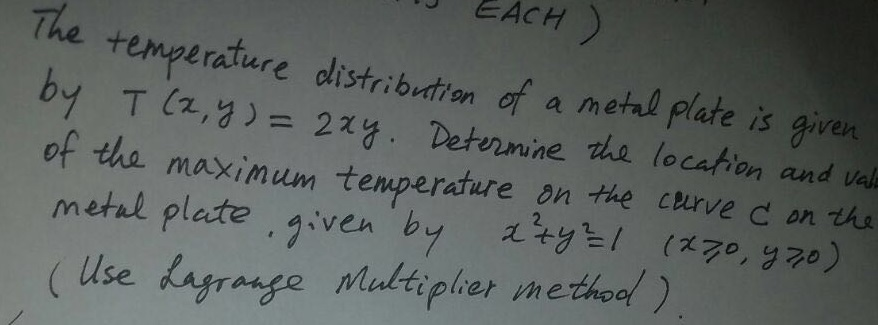 EACH)
The temperature distribution of a metal plate is given
by T(x,y) = 2xy. Determine the location and
of the maximum temperature on the curve C on the
metal plate, given by x²+y²=1 (x≥0, y≥0)
(Use Lagrange Multiplier method).